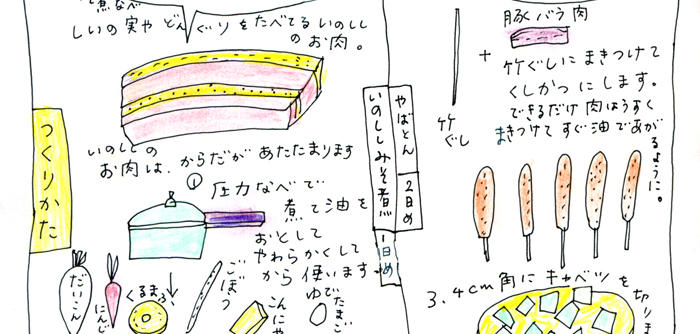 しいの実や どんぐりをたべてるいのしし
のお肉。
つくりかた
いのししの
お肉は、からだが あたたまります
①
圧力なべで
煮て油を
おとして
やわらかくして
から 使います
だいこん
にんじ
くるまふ
ごぼう
こんにゃ
ゆで
たまご
いのししみそ煮
1日め
やばとん
2日め
豚バラ肉
+
竹ぐしにまきつけて
くしかつにします。
できるだけ肉はうすく
まきつけてすぐ油であが
るように。
竹
ぐし
3.4cm角にキャベツを
切りま